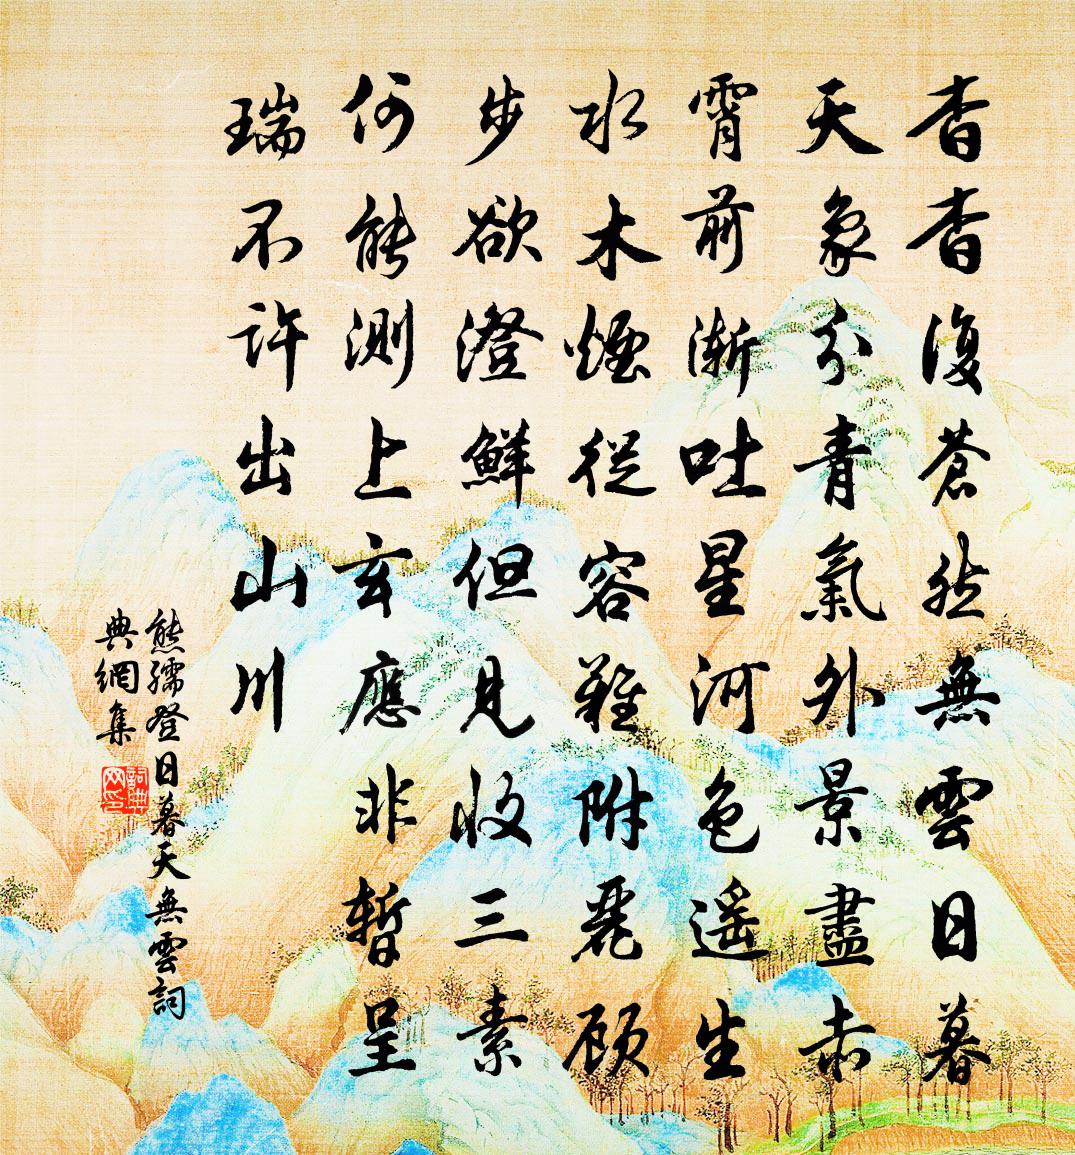 杳杳復蒼然無雲日暮
天象分青氣外景盡赤
霄前漸吐星河色遙生
水木煙從容難附麗顾
步欲澄鮮但見收三素
何能測上玄應非暫呈
瑞不許出山川
熊孺登日暮天無雲詞
典網集
詞典
网印